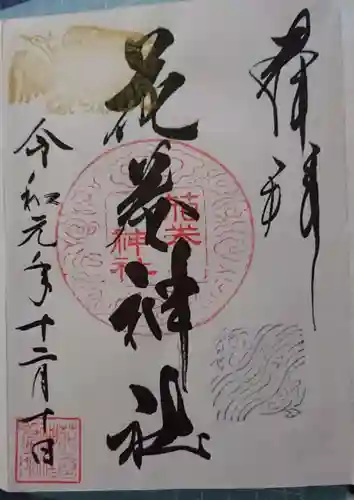 奉拝
花巻神社
花巻
神社
令和元年十二月十日